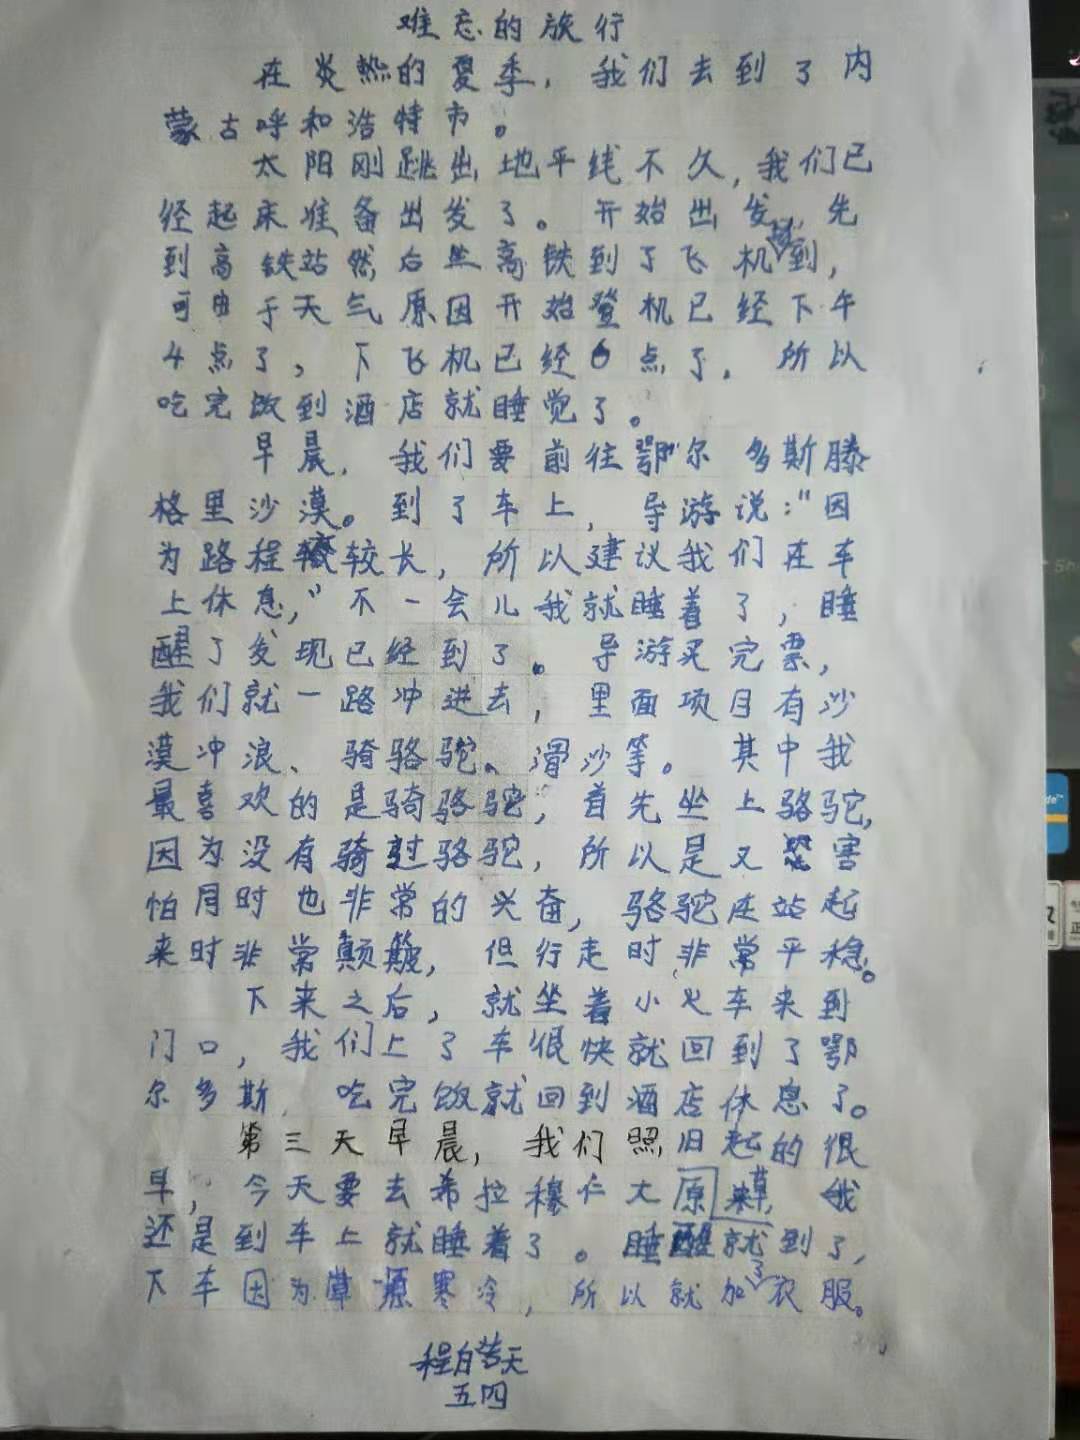 难忘的旅行
在炎热的夏季，我们去到了内
蒙古呼和浩特市。
太阳刚跳出地平线不久，我们已
经起来准备出发了。开始出发，先
到高铁站然后坐高铁到了飞机场到，
可由于天气原因开始登机已经下午
4点了，下飞机已经6点了。所以
吃完饭到酒店就睡觉了。
早晨，我们要前往鄂尔多斯腾
格里沙漠。到了车上，导游说："因
为路程较长，所以建议我们在车
上休息，"不一会儿我就睡着了，睡
醒了发现已经到了。导游买完票，
我们就一路冲进去，里面项目有沙
漠冲浪、骑骆驼、滑沙等。其中我
最喜欢的是骑骆驼，首先坐上骆驼，
因为没有骑过骆驼，所以是又害
怕同时也非常的兴奋，骆驼在站起
来时非常颠簸，但行走时非常平稳。
下来之后，就坐着小火车来到
门口，我们上了车很快就回到了鄂
尔多斯，吃完饭就回到酒店休息了。
第三天早晨，我们照旧起的很
早，今天要去希拉穆仁大原草，我
还是到车上就睡着了。睡醒就到了，
下车因为草原寒冷，所以就加了衣服。
五四